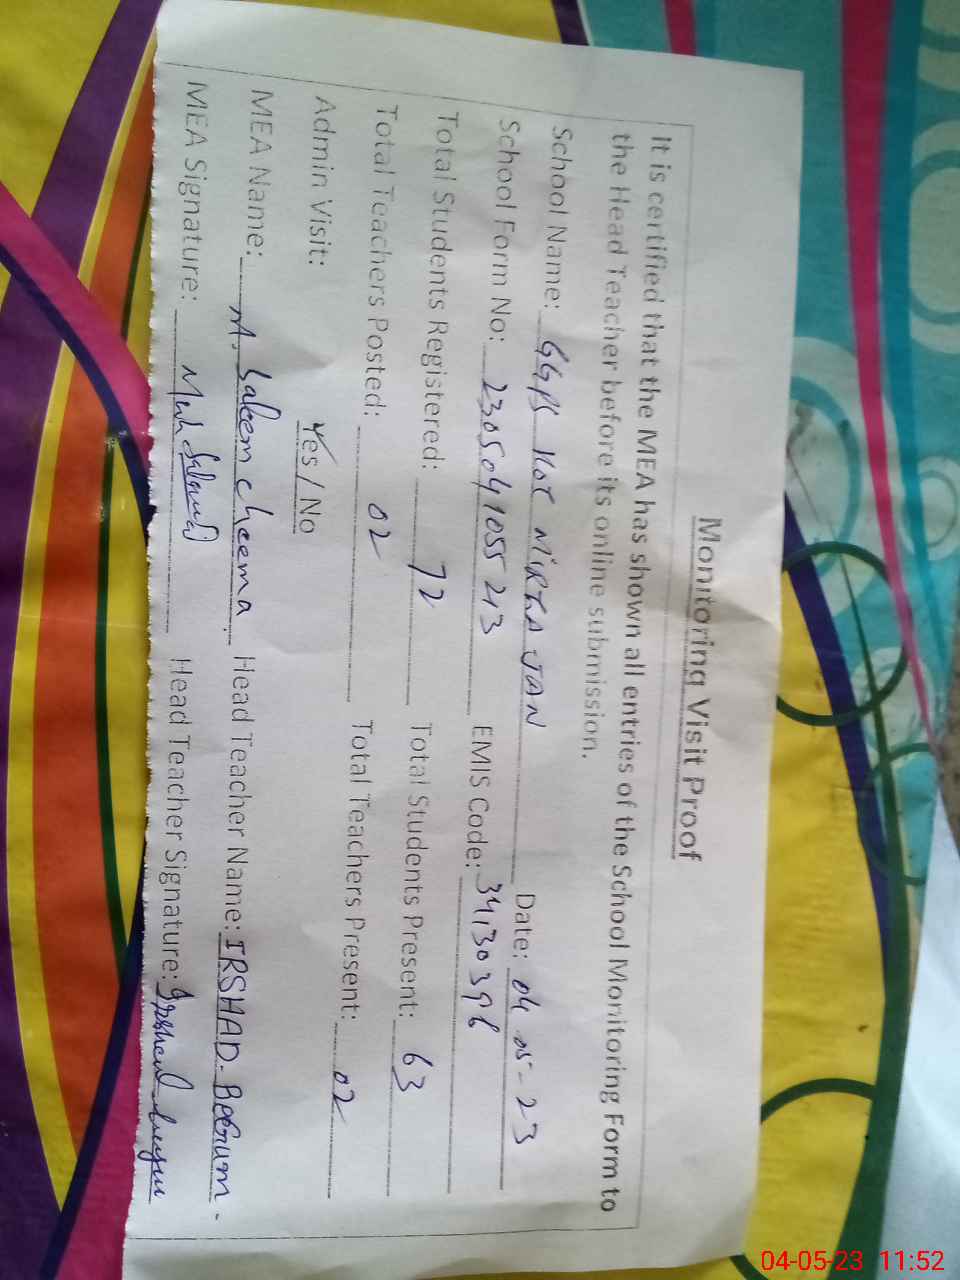 Monitoring Visit Proof
It is certified that the MEA has shown all entries of the School Monitoring Form to
the Head Teacher before its online submission.
School Name: GGPS KOT MIRZA JAN Date: 04-05-23
School Form No: 2305041055213 EMIS Code: 34130396
Total Students Registered: 72 Total Students Present: 63
Total Teachers Posted: 02 Total Teachers Present: 02
Admin Visit: Yes / No
MEA Name: M. Saleem cheema. Head Teacher Name: IRSHAD. BEGUM-
MEA Signature: Head Teacher Signature: Irshad Begum
04-05-23 11:52